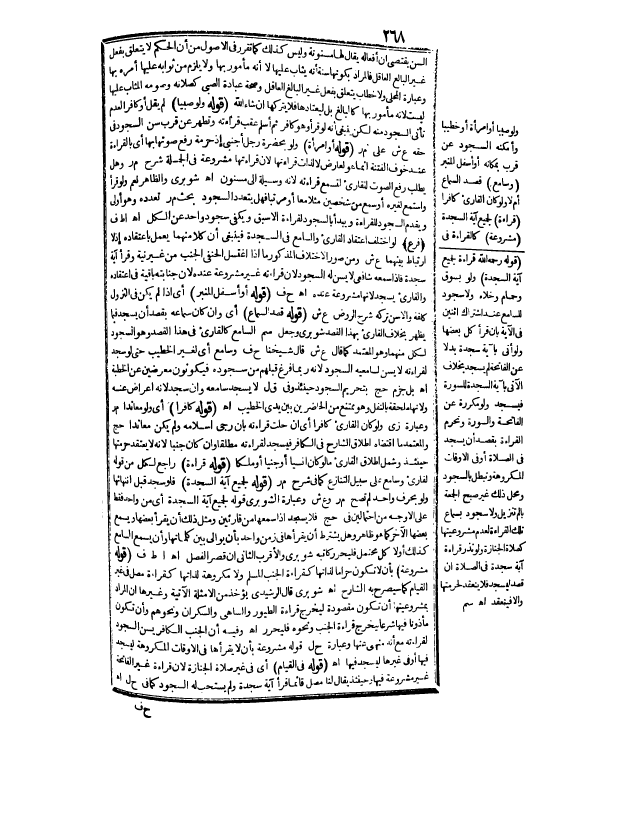 ٣٦٨
السن يقتضى ان أفعاله يقال لها مسنونة وليس كذلك كما تقرر فى الاصول من أن الحكم لا يتعلق بفعل
غير البالغ العاقل فالمراد بكونها سنة أنه يثاب عليها لا أنه مأمور بها ولا يلزم من ثوابه عليها أمره بها
وعبارة المحلى ولا خطاب يتعلق بفعل غير البالغ العاقل وصحة عبادة الصبى كصلاته وصومه المثاب عليها
ليست لانه مأمور بها كالبالغ بل ليعتادها فلا يتركها ان شاء الله (قوله ولوصبيا) لم يقل أو كافر العدم
تأتى السجود منه لكن ينبغى أنه لو قرأ وهو كافر ثم أسلم عقب قراءته وتطهر عن قرب سن السجود فى
حقه ع ش على م ر (قوله أو امرأة) ولو بحضرة رجل أجنبى اذ حرمة رفع صوتها بها أى بالقراءة
عند خوف الفتنة انما هو لعارض لا لذات قراءتها لان قراءتها مشروعة فى الجملة شرح م ر وهل
يطلب رفع الصوت للقارئ لتسمع قراءته لانه وسيلة الى مسنون اه شوبرى والظاهر نعم ولو قرأ
واستمع لغيره أو سمع من شخصين مثلا معا أو مرتبا فهل يتعدد السجود بحث م ر تعدده وهو أولى
ويقدم السجود للقراءة ويبدأ بالسجود لقراءة الاسبق ويكفى سجود واحد عن الكل اه ا ط ف
(فرع) لو اختلف اعتقاد القارئ والسامع فى السجدة فينبغى أن كلا منهما يعمل باعتقاده إذ لا
ارتباط بينهما ع ش ومن صور الاختلاف المذكور ما اذا اغتسل الحنفى الجنب من غير نية وقرأ آية
سجدة فاذا سمعه شافعى لا يسن له السجود لان قراءته غير مشروعة عنده لان جنابته باقية فى اعتقاده
والقارئ يسجد لانها مشروعة عنده اه ح ف (قوله أو أسفل المنبر) أى اذا لم يكن فى النزول
كلفة والا سن تركه شرح الروض ع ش (قوله قصد السماع) أى وان كان سماعه بقصد أن يسجد فيما
يظهر بخلاف القارئ بهذا القصد شوبرى وجعل سم السامع كالقارئ فى هذا القصد وهو السجود
لكل منهما وهو المعتمد كما قال ع ش قال شيخنا ح ف وسامع أى لغير الخطيب حتى لو سجد
لقراءته لا يسن لسامعيه السجود لانه ربما فرغ قبلهم من سجوده فيكونون معرضين عن الخطبة
اه بل جزم حج بتحريم السجود حينئذ وفى ق ل لا يسجد سامعه وان سجد لانه اعراض عنه
ولانها ملحقة بالنفل وهو ممتنع من الحاضرين بين يدى الخطيب اه (قوله كافرا) أى ولو معاندا م ر
وعبارة زى ولو كان القارئ كافرا أى ان حلت قراءته بان رجى اسلامه ولم يكن معاندا حج
والمعتمد ما اقتضاه اطلاق الشارح فى الكافر فيسجد لقراءته مطلقا وان كان جنبا لانه لا يعتقد حرمتها
حينئذ وشمل اطلاق القارئ ما لو كان انسيا أو جنيا أو ملكا (قوله قراءة) راجع لكل من قوله
لقارئ وسامع على سبيل التنازع كما فى شرح م ر (قوله لجميع آية السجدة) فلو سجد قبل انتهائها
ولو بحرف واحد لم تصح م ر وع ش وعبارة الشوبرى قوله لجميع آية السجدة أى من واحد فقط
على الاوجه من احتمالين فى حج فلا يسجد اذا سمعها من قارئين ومثل ذلك أن يقرأ بعضها ويسمع
بعضها الآخر كما هو ظاهر وهل يشترط أن يقرأها فى زمن واحد بأن يوالى بين كلماتها وأن يسمع السامع
كذلك أولا كل محتمل فليحرر كاتبه شوبرى والاقرب الثانى ان قصر الفصل اه ا ط ف (قوله
مشروعة) بأن لا تكون حراما لذاتها كقراءة الجنب المسلم ولا مكروهة لذاتها كقراءة مصل فى غير
القيام كما سيصرح به الشارح اه شوبرى قال الرشيدى يؤخذ من الامثلة الآتية وغيرها ان المراد
بمشروعيتها أن تكون مقصودة ليخرج قراءة الطيور والساهى والسكران ونحوهم وأن تكون
مأذونا فيها شرعا ليخرج قراءة الجنب ونحوه فليحرر اه وفيه أن الجنب الكافر يسن السجود
لقراءته مع أنه منهى عنها وعبارة ح ل قوله مشروعة بأن لا يقرأها فى الاوقات المكروهة ليسجد
فيها أو فى غيرها ليسجد فيها اه (قوله فى القيام) أى فى غير صلاة الجنازة لان قراءة غير الفاتحة
غير مشروعة فيها وحينئذ يقال لنا مصل قائما قرأ آية سجدة ولم يستحب له السجود كما فى ح ل اه
ح ف
ولوصبيا أو امرأة أو خطيبا
وأمكنه السجود عن
قرب بمكانه أو أسفل المنبر
(وسامع) قصد السماع
أم لا ولو كان القارئ كافرا
(قراءة) لجميع آية السجدة
(مشروعة) كالقراءة فى
(قوله رحمه الله قراءة لجميع
آية السجدة) ولو بسوق
وحمام وخلاء ولا سجود
للسامع عند اشتراك اثنين
فى الآية بان قرأ كل بعضها
ولو أتى بآية سجدة بدلا
عن الفاتحة لم يسجد بخلاف
الآتى بآية السجدة للسورة
فيسجد ولو مكررة عن
الفاتحة والسورة وتحرم
القراءة بقصد أن يسجد
فى الصلاة أو فى الاوقات
المكروهة وتبطل بالسجود
ومحل ذلك غير صبح الجمعة
بالم تنزيل ولا سجود بسماع
تلك القراءة لعدم مشروعيتها
كصلاة الجنازة ولو نذر قراءة
آية سجدة فى الصلاة ان
قصد ليسجد فلا ينعقد لحرمتها
والا فينعقد اه سم